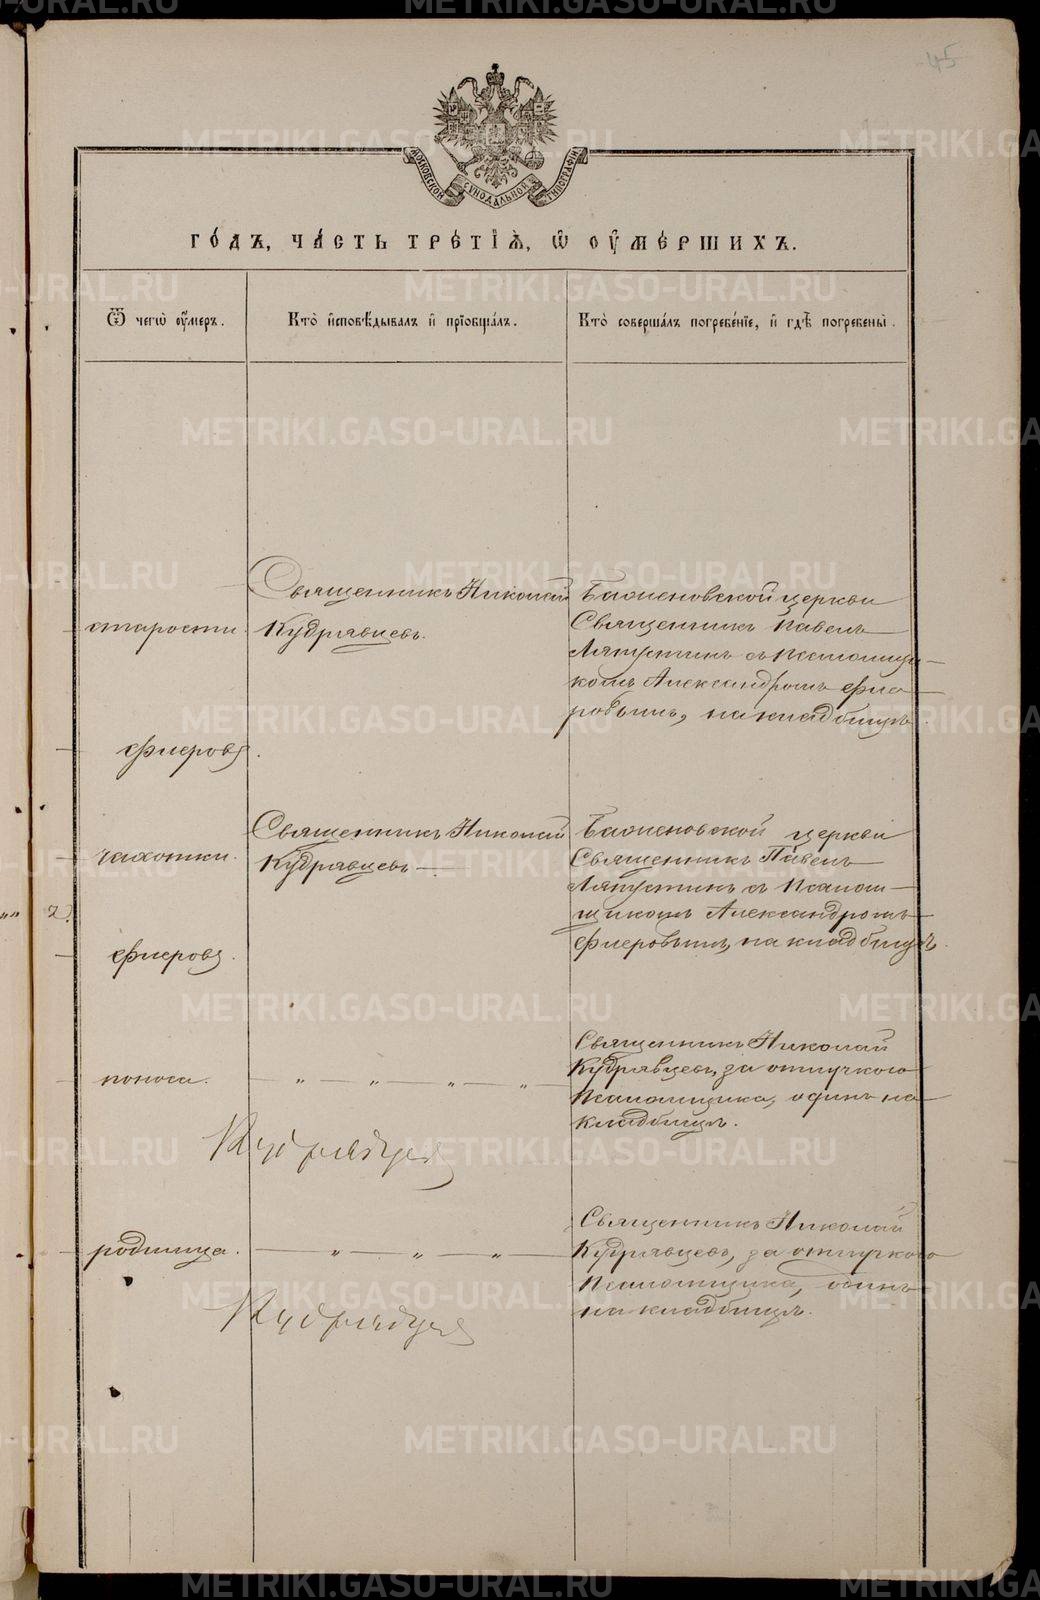 45
МОСКОВСКОЙ СѴНОДАЛЬНОЙ ТИПОГРАФІИ
ГО́ДЪ, ЧА́СТЬ ТРЕ́ТІѦ, Ѡ҆ ОУ҆МЕ́РШИХЪ.
Ѿ чегѡ̀ оу҆́меръ.
Кто̀ и҆сповѣ́дывалъ и҆ прїѡбща́лъ.
Кто̀ соверша́лъ погребе́нїе, и҆ гдѣ̀ погребены̀.
старости
Священникъ Николай
Кудрявцевъ.
церкви
Священникъ Павелъ
Ляпустинъ съ Псаломщи-
комъ Александромъ Фле-
ровымъ, на кладбищѣ.
Флеровъ.
чахотки.
Священникъ Николай
Кудрявцевъ
церкви
Священникъ Павелъ
Ляпустинъ съ Псалом-
щикомъ Александромъ
Флеровымъ, на кладбищѣ.
Флеровъ.
поноса.
Священникъ Николай
Кудрявцевъ, за отлучкою
Псаломщика, одинъ на
кладбищѣ.
Кудрявцевъ
родимца.
Священникъ Николай
Кудрявцевъ, за отлучкою
Псаломщика, одинъ
на кладбищѣ.
Кудрявцевъ
METRIKI.GASO-URAL.RU